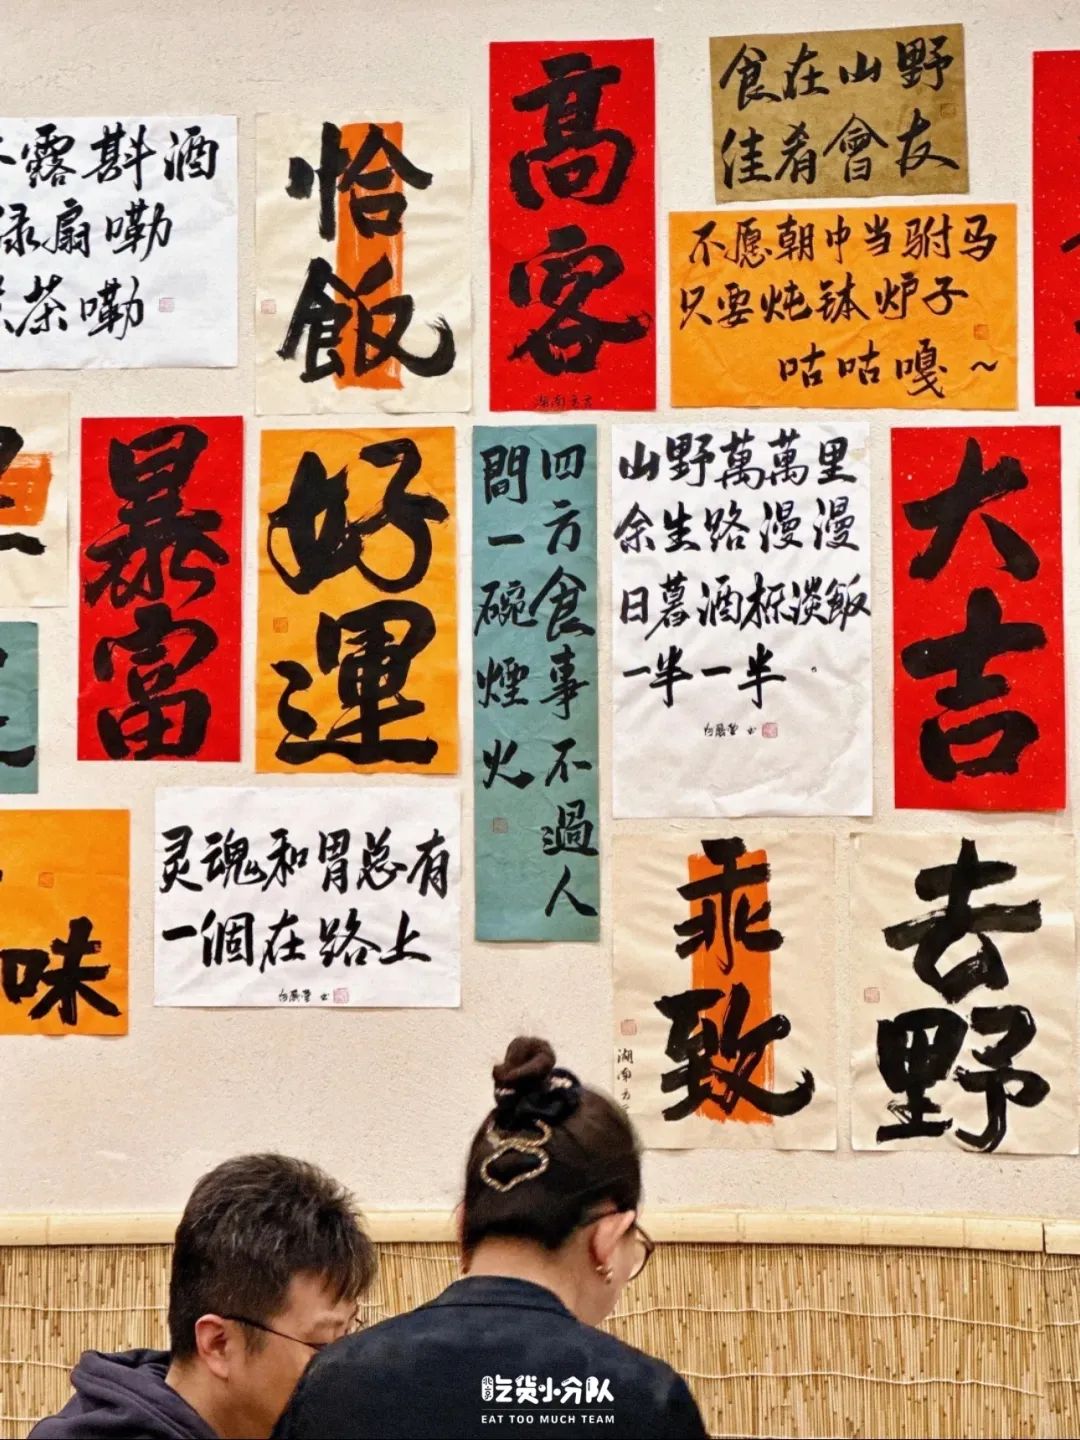 露斟酒
扇嘞
茶嘞
恰
飯
高
客
湖南
食在山野
佳肴會友
不愿朝中当驸马
只要炖钵炉子
咕咕嘎~
暴
富
好
運
四方食事不過人
間一碗煙火
山野萬萬里
余生路漫漫
日暮酒标淡飯
一半一半。
大
吉
味
灵魂和胃总有
一個在路上
乖
致
湖南
去
野
北京
吃货小分队
EAT TOO MUCH TEAM